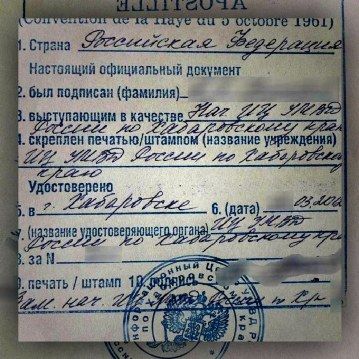 APOSTILLE
(Convention de la Haye du 5 octobre 1961)
1. Страна Российская Федерация
Настоящий официальный документ
2. был подписан (фамилия)
3. выступающим в качестве Нач ИЦ УМВД
России по Хабаровскому краю
4. скреплен печатью/штампом (название учреждения)
ИЦ УМВД России по Хабаровскому
краю
Удостоверено
5. в г. Хабаровске 6. (дата) 03.20
(название удостоверяющего органа) ИЦ УМВД
России по Хабаровскому кр
8. за N
9. печать / штамп 10.
Зам. нач. ИЦ УМВД России по Хр